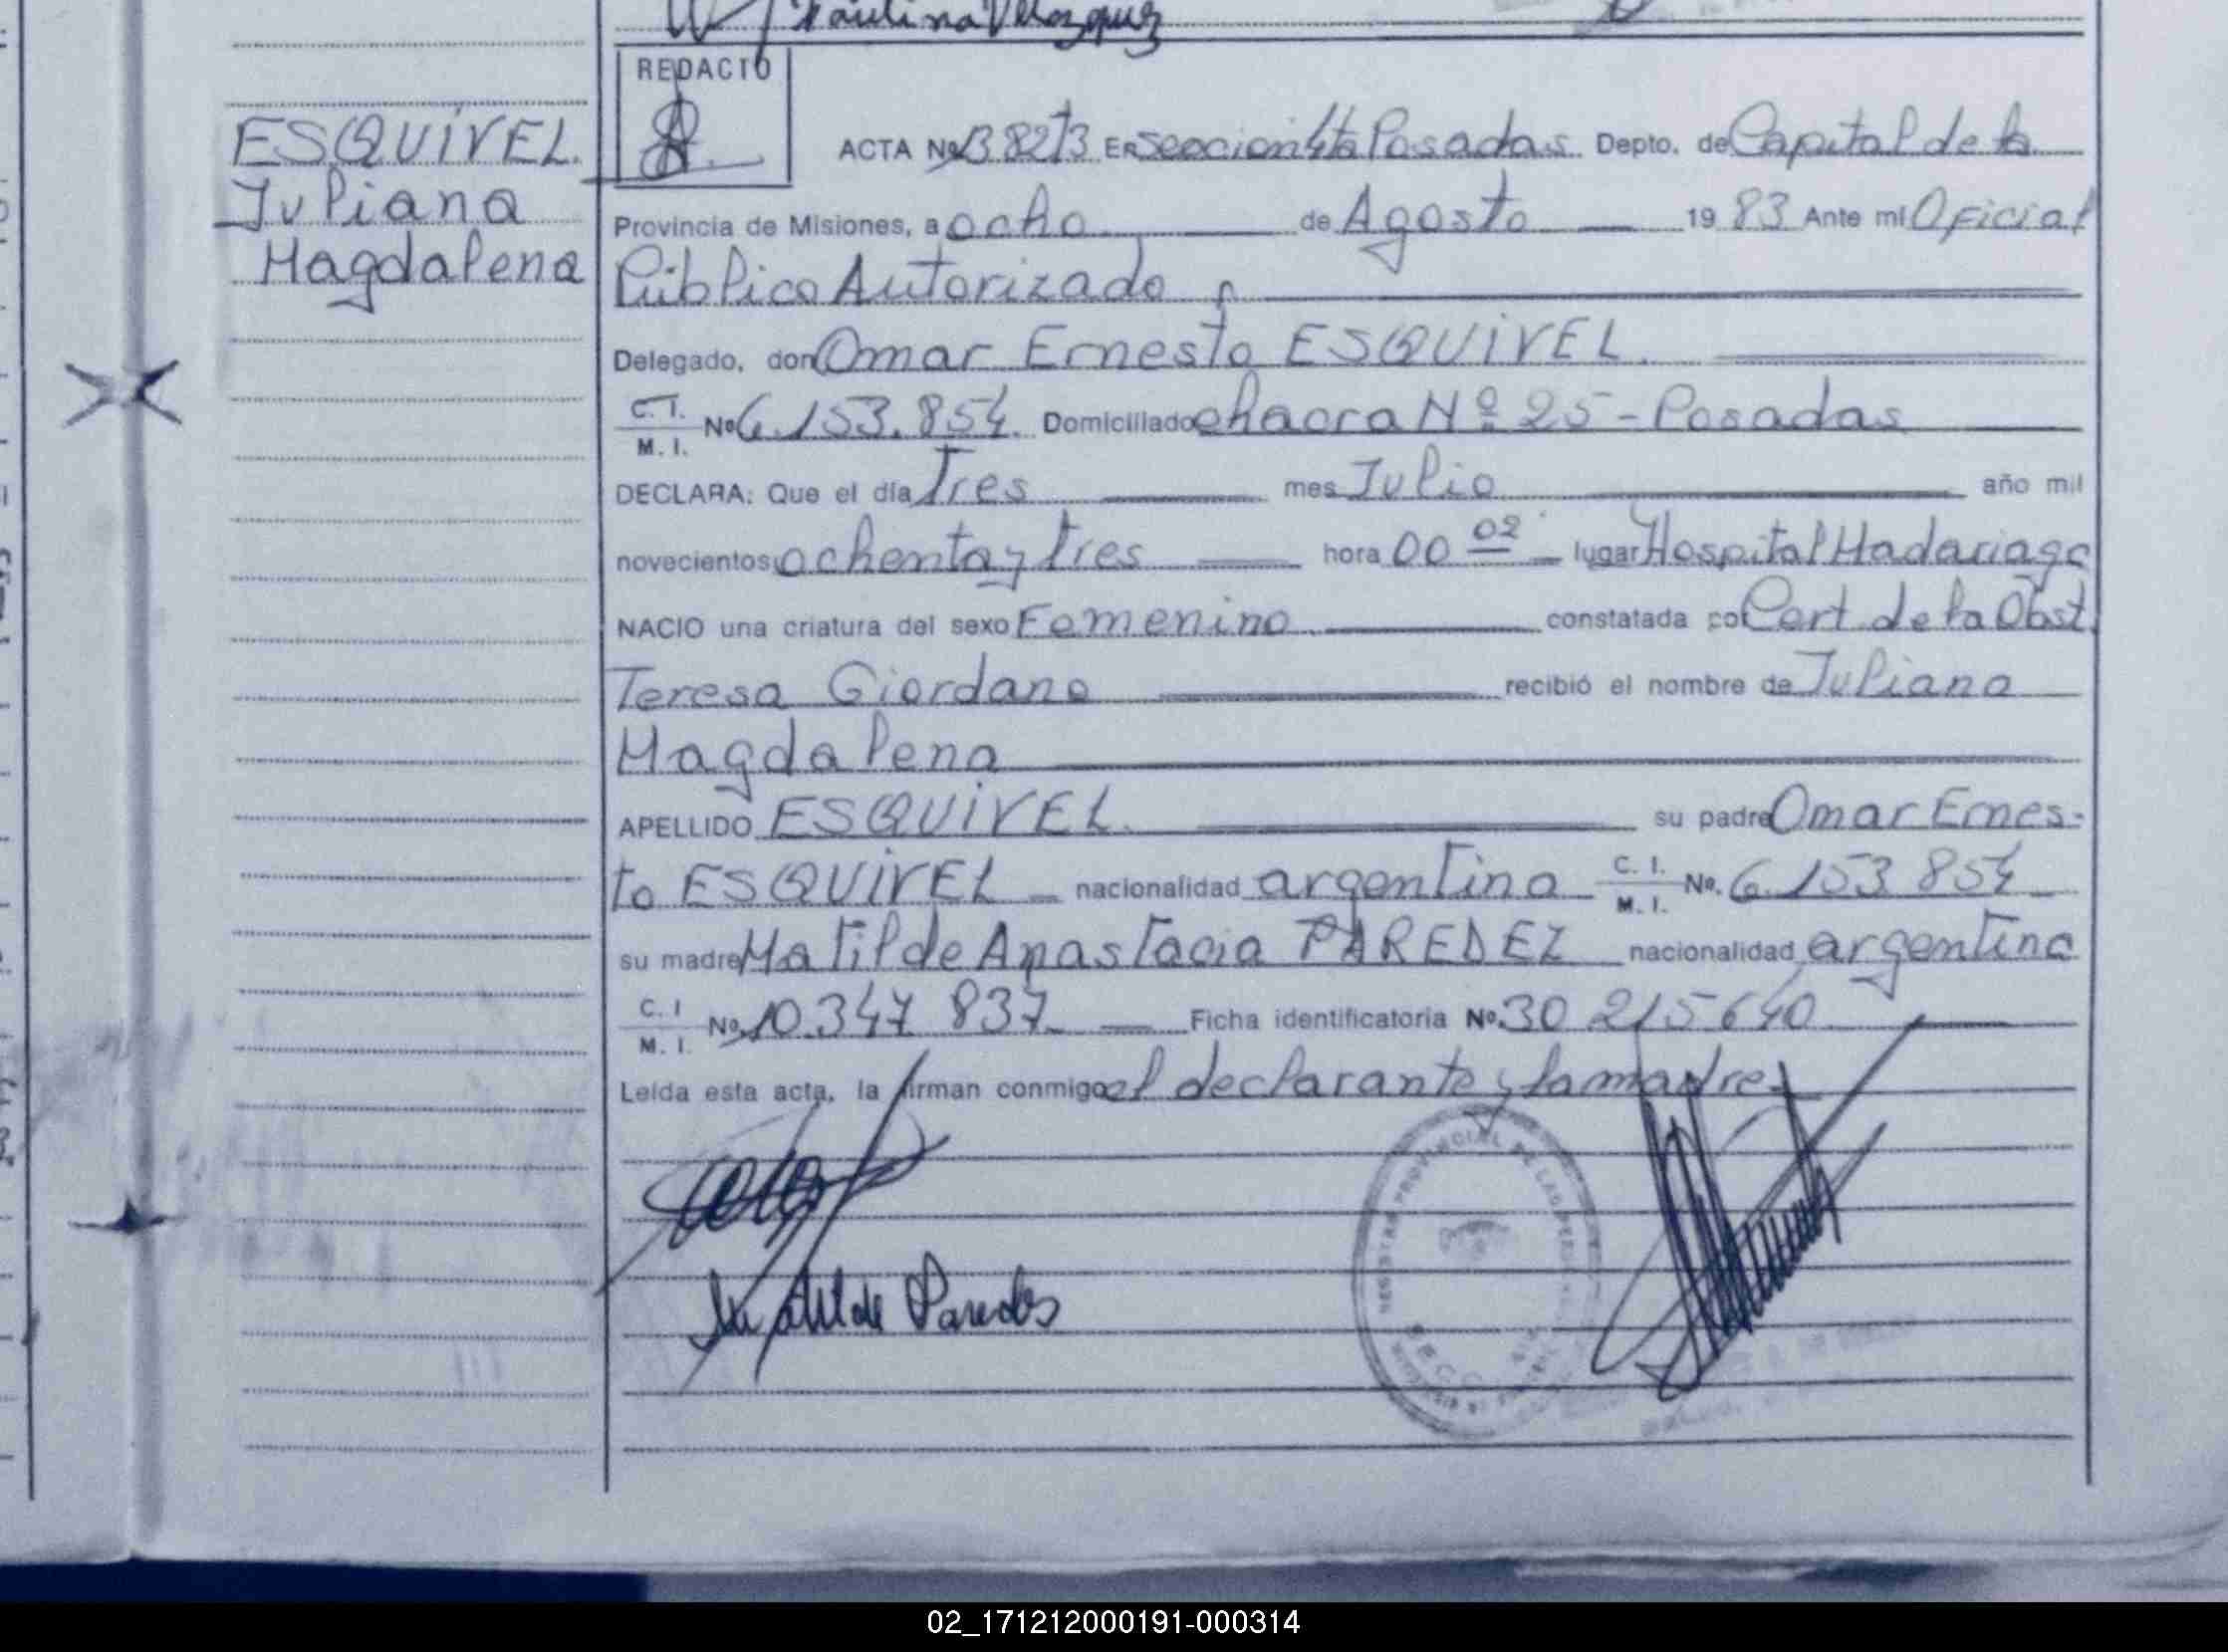 Paulina Velazquez
REDACTO
ESQUIVEL.
Juliana
Magdalena
ACTA Nº 3827/3 En Sección 4ta Posadas Depto. de Capital de la
Provincia de Misiones, a ocho de Agosto 1983 Ante mí Oficial
Público Autorizado
Delegado, don Omar Ernesto ESQUIVEL.
C. I.
M. I. Nº 6.153.854. Domiciliado chacra Nº 25 - Posadas
DECLARA: Que el día Tres mes Julio año mil
novecientos ochenta y tres hora 00 02 lugar Hospital Madariaga
NACIO una criatura del sexo Femenino constatada por Cert. de la Obst.
Teresa Giordano recibió el nombre de Juliana
Magdalena
APELLIDO ESQUIVEL. su padre Omar Ernes-
to ESQUIVEL nacionalidad argentina C. I.
M. I. No. 6.153 854
su madre Matilde Anastacia PAREDEZ nacionalidad argentina
C. I
M. I. No. 10.347 837 Ficha identificatoria Nº 30 215 640
Leída esta acta, la firman conmigo el declarante y la madre
Matilde Paredes
02_171212000191-000314